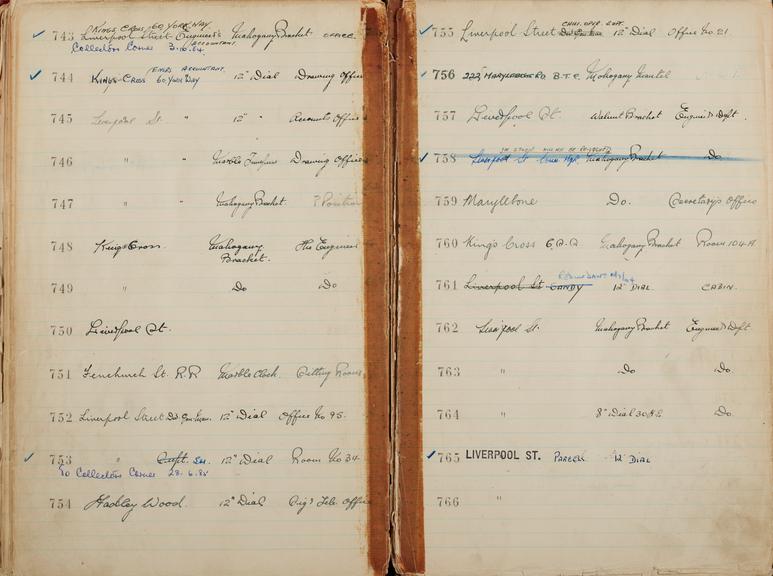 KINGS CROSS, 60 YORK WAY
743 Liverpool Street Engineer's Mahogany Bracket OFFICE
ACCOUNTANT
Collectors Corner 3.10.84
ENGRS ACCOUNTANT
744 KINGS-CROSS 60 YORK WAY 12" Dial Drawing Office
745 Liverpool St. " 12" " Accounts Office
746 " " Marble Drawing Office
747 " " Mahogany Bracket ? Position
748 Kings Cross. Mahogany Bracket. The Engineer
749 Do Do
750 Liverpool St.
751 Fenchurch St. R.R Marble Clock.
752 Liverpool Street 12" Dial Office No 95.
753 " Supt. 12" Dial Room No 34
To Collectors Corner 28.6.85
754 Hadley Wood. 12" Dial Sig & Tele Office
755 Liverpool Street 12" Dial Office No. 21.
756 222 MARYLEBONE RD B.T.C. Mahogany Mantel
757 Liverpool St. Walnut Bracket Engineers Dept.
758 Liverpool St Mahogany Bracket Do
759 Marylebone Do. Secretary's Office
760 King's Cross Mahogany Bracket Room 104A
761 Liverpool St GANDY 12" DIAL CABIN.
762 Liverpool St. Mahogany Bracket Engineers Dept
763 " Do Do
764 " 8" Dial Do.
765 LIVERPOOL ST. PARCEL 12" DIAL
766 "